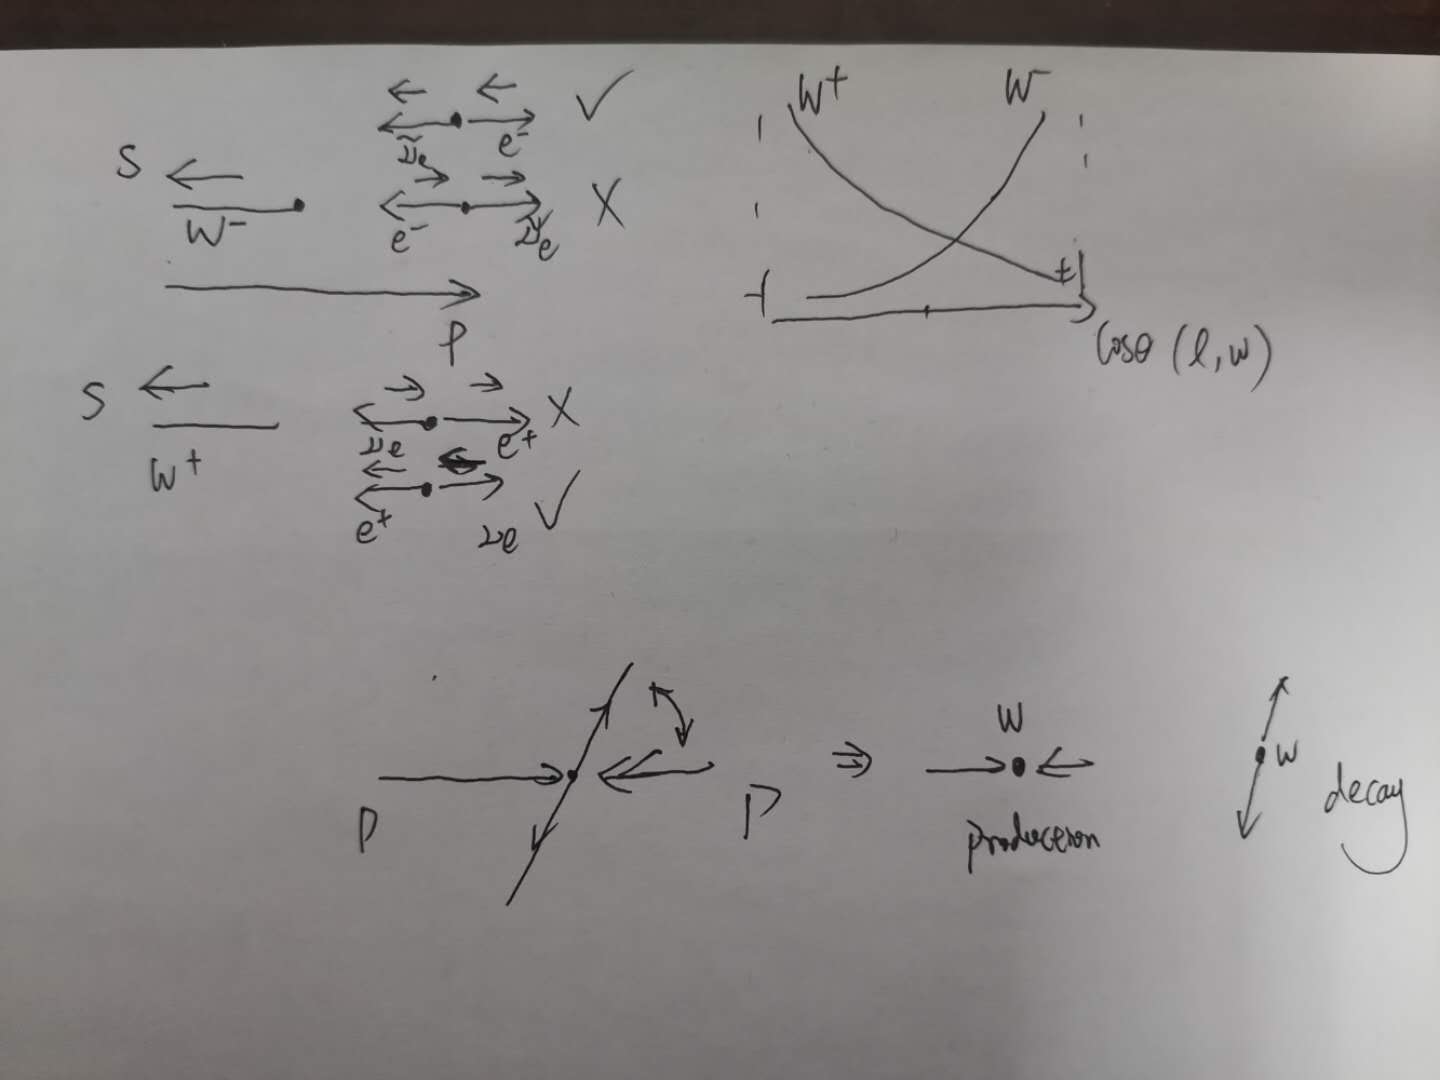 ν̃e e⁻ ✓
S
W⁻
e⁻ ν̃e X
P
S
W⁺
νe e⁺ X
e⁺ νe ✓
W⁺ W⁻
-1 +1
cosθ (l, w)
P P
⇒
W
production
W
decay